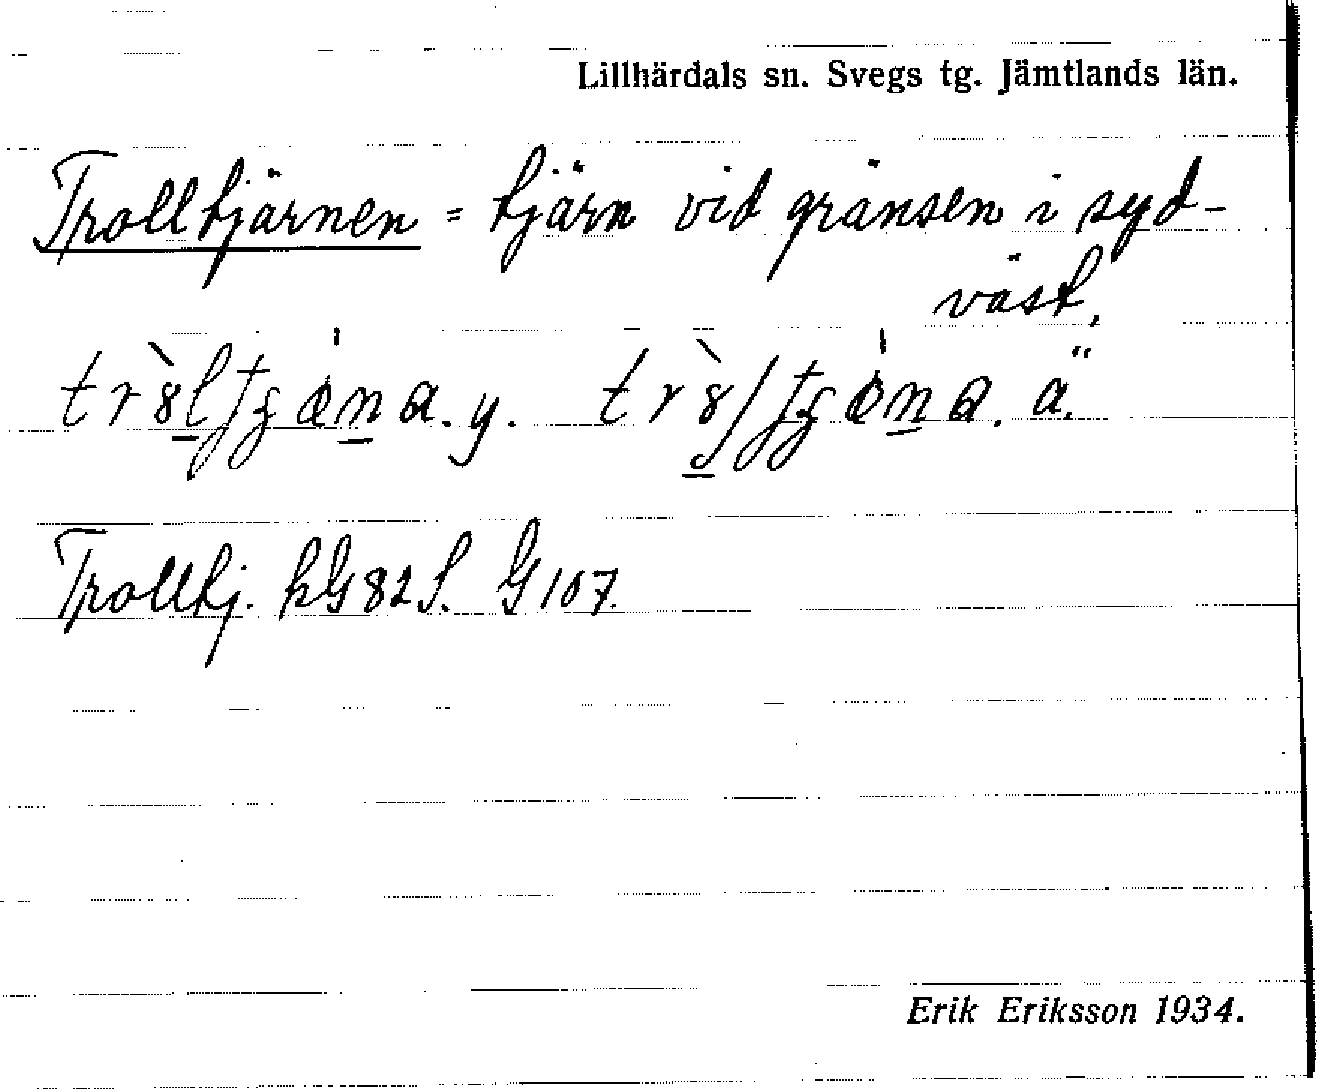 Lillhärdals sn. Svegs tg. Jämtlands län.
Trolltjärnen = tjärn vid gränsen i syd-
väst.
Trolltj. kG 82 S. G 107.
Erik Eriksson 1934.